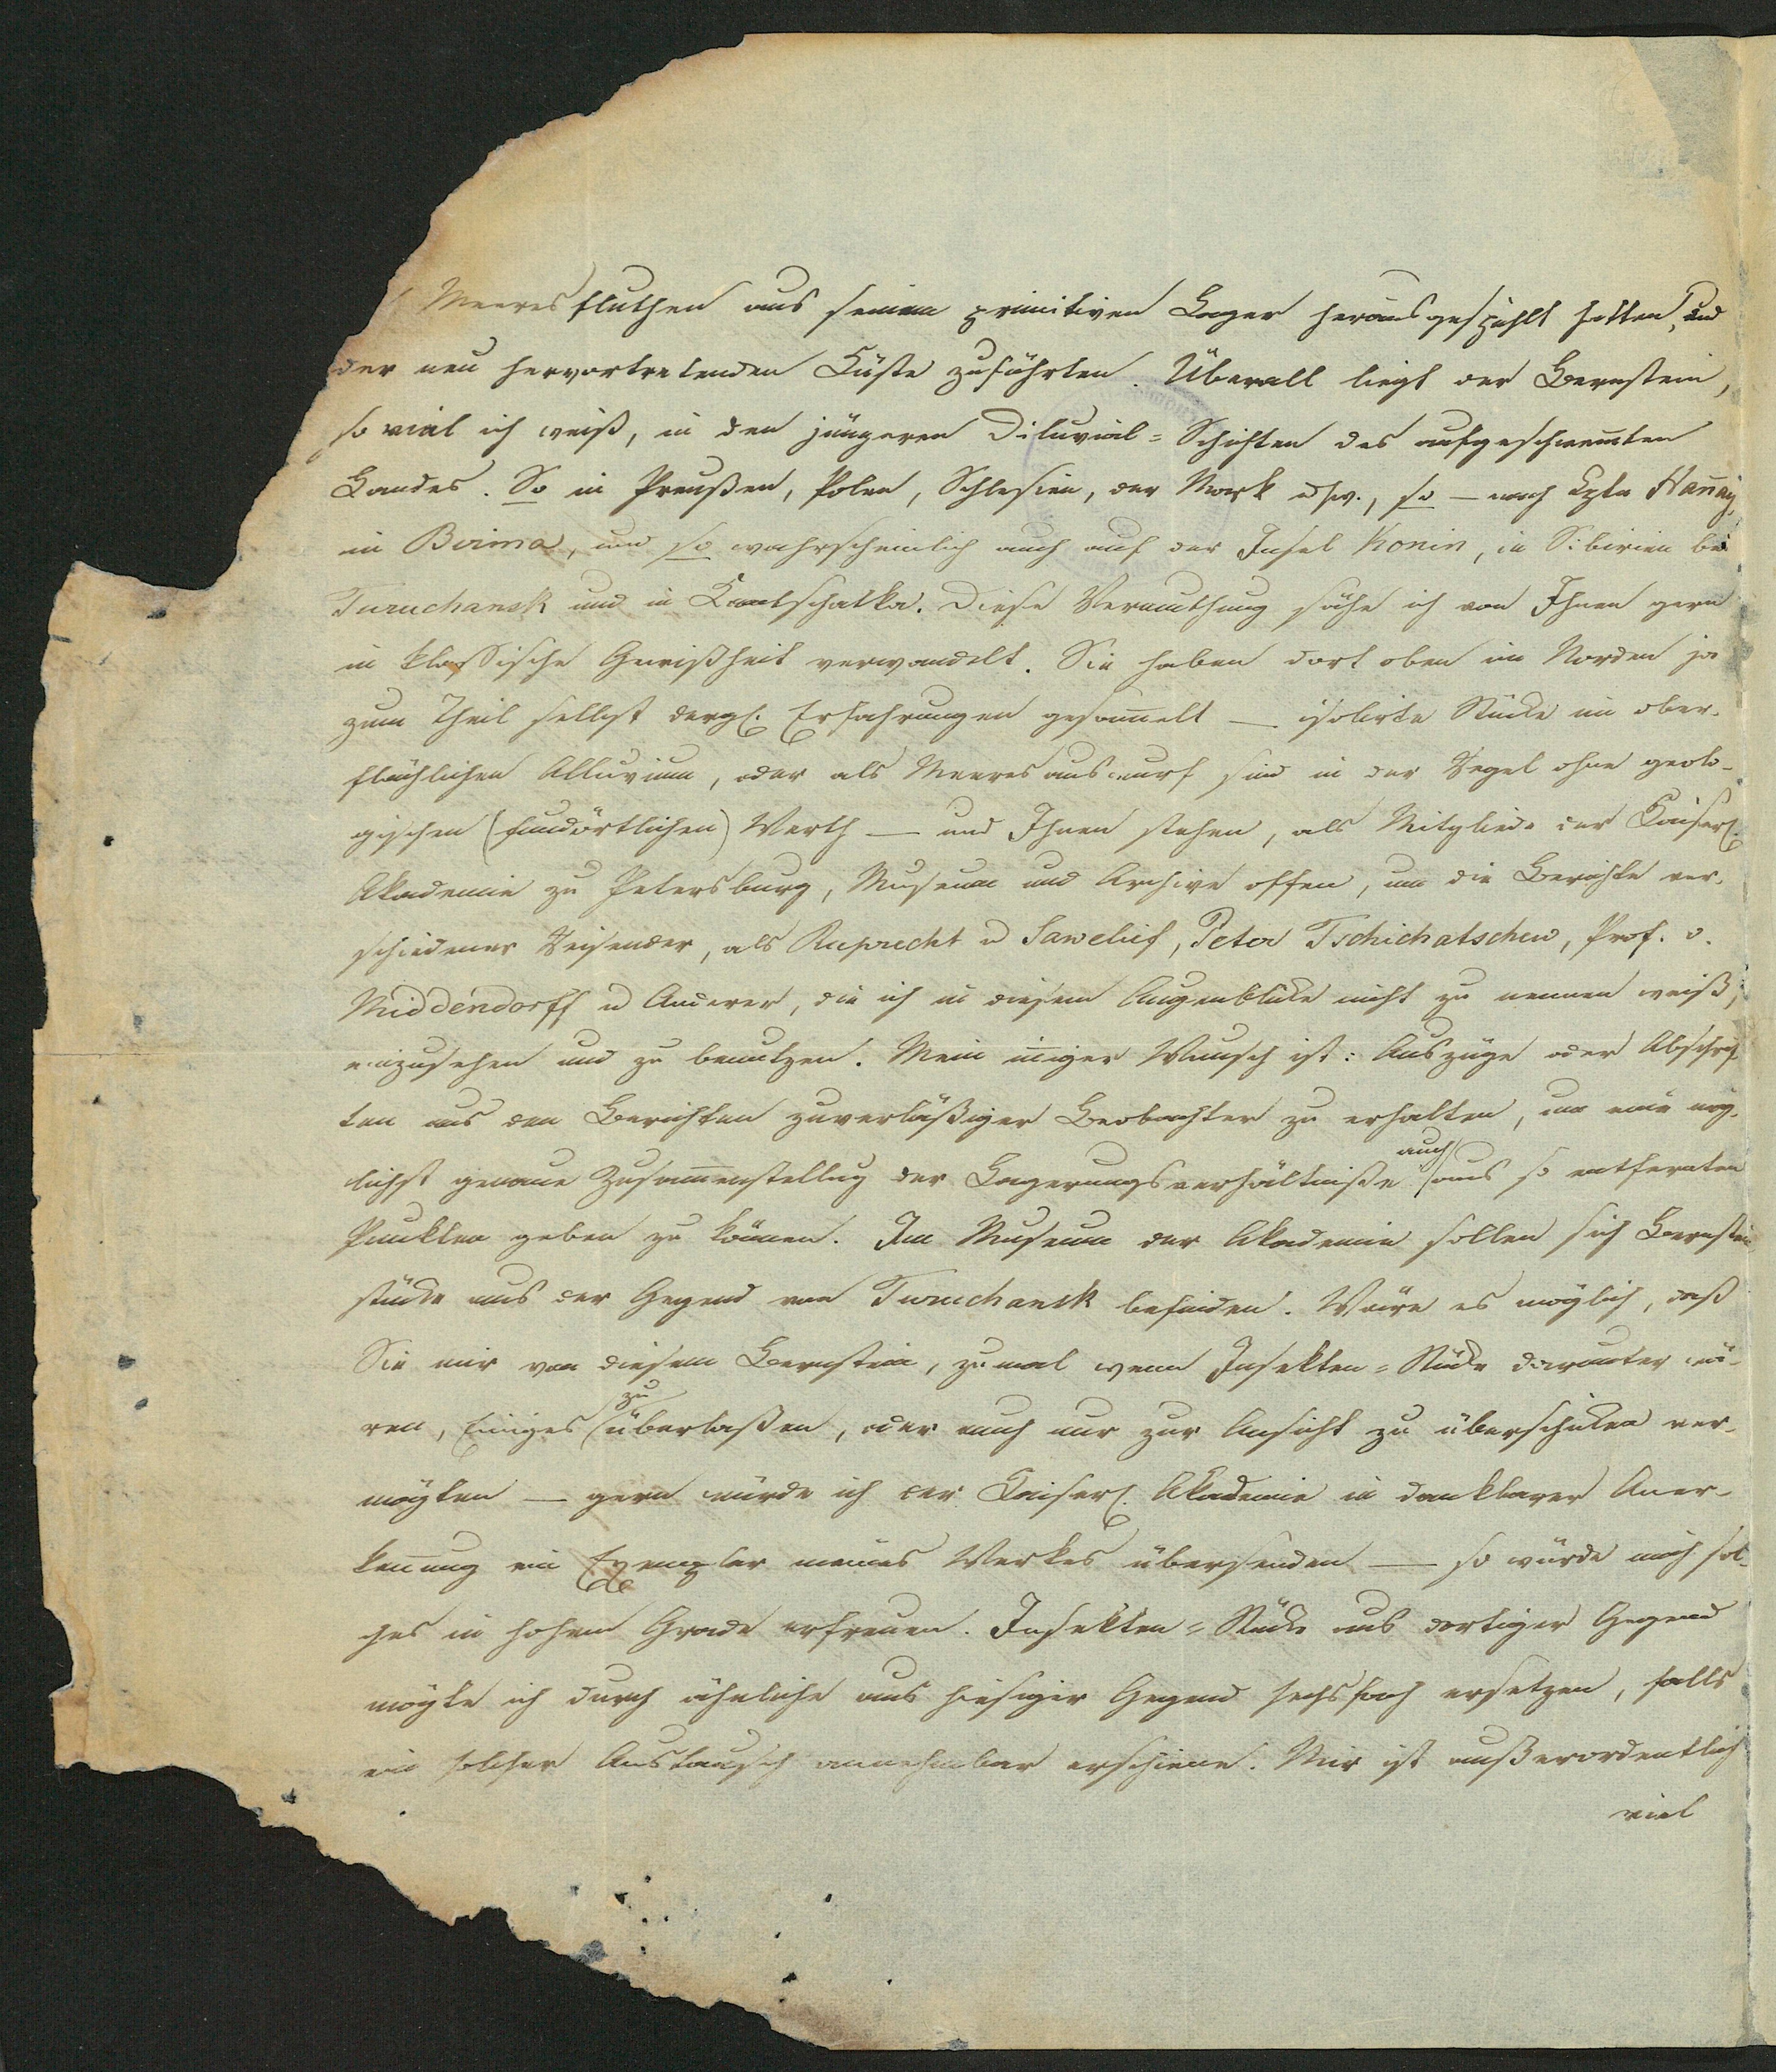 Meeresfluthen aus seinem primitiven Lager herausgespühlt hatten, und
der neu hervortretenden Küste zuführten. Überall liegt der Bernstein,
so viel ich weiß, in den jüngeren Diluvial=Schichten des aufgeschwem̅ten
Landes. So in Preußen, Polen, Schlesien, der Mark usw., so — nach Kptn Han̅ay,
in Birma, und so wahrscheinlich auch auf der Insel Konin, in Sibirien bei
Turuchansk und in Kamtschatka. Diese Vermuthung sähe ich von Ihnen gern
in klassische Gewißheit verwandelt. Sie haben dort oben im Norden ja
zum Theil selbst dergl. Erfahrungen gesam̅elt — isolirte Stücke im ober-
flächlichen Alluvium, oder als Meeresauswurf sind in der Regel ohne geolo-
gischen (fundörtlichen) Werth — und Ihnen stehen, als Mitgliede der Kaiserl.
Akademie zu Petersburg, Museum und Archive offen, um die Berichte ver-
schiedener Reisender, als Ruprecht u Sawelief, Peter Tschichatschew, Prof. v.
Middendorff u Anderer, die ich in diesem Augenblicke nicht zu nennen weiß,
einzusehen und zu benutzen. Mein in̅iger Wunsch ist: Auszüge oder Abschrif-
ten aus den Berichten zuverläßiger Beobachter zu erhalten, um eine mög-
lichst genaue Zusam̅enstellug der Lagerungsverhältniße auch aus so entfernten
Punkten geben zu können. Im Museum der Akademie sollen sich Bernstein
stücke aus der Gegend von Turuchansk befinden. Wäre es möglich, daß
Sie mir von diesem Bernstein, zumal wenn Insekten=Stücke darunter wä-
ren, Einiges zu überlaßen, oder auch nur zur Ansicht zu überschicken ver-
möchten — gern würde ich der Kaiserl. Akademie in dankbarer Aner-
ken̅ung ein Exemplar meines Werkes übersenden — so würde mich sol-
ches in hohem Grade erfreuen. Insekten=Stücke aus dortiger Gegend
möchte ich durch ähnliche aus hiesiger Gegend sechsfach ersetzen, falls
ein solcher Austausch annehmbar erschiene. Mir ist außerordentlich
viel